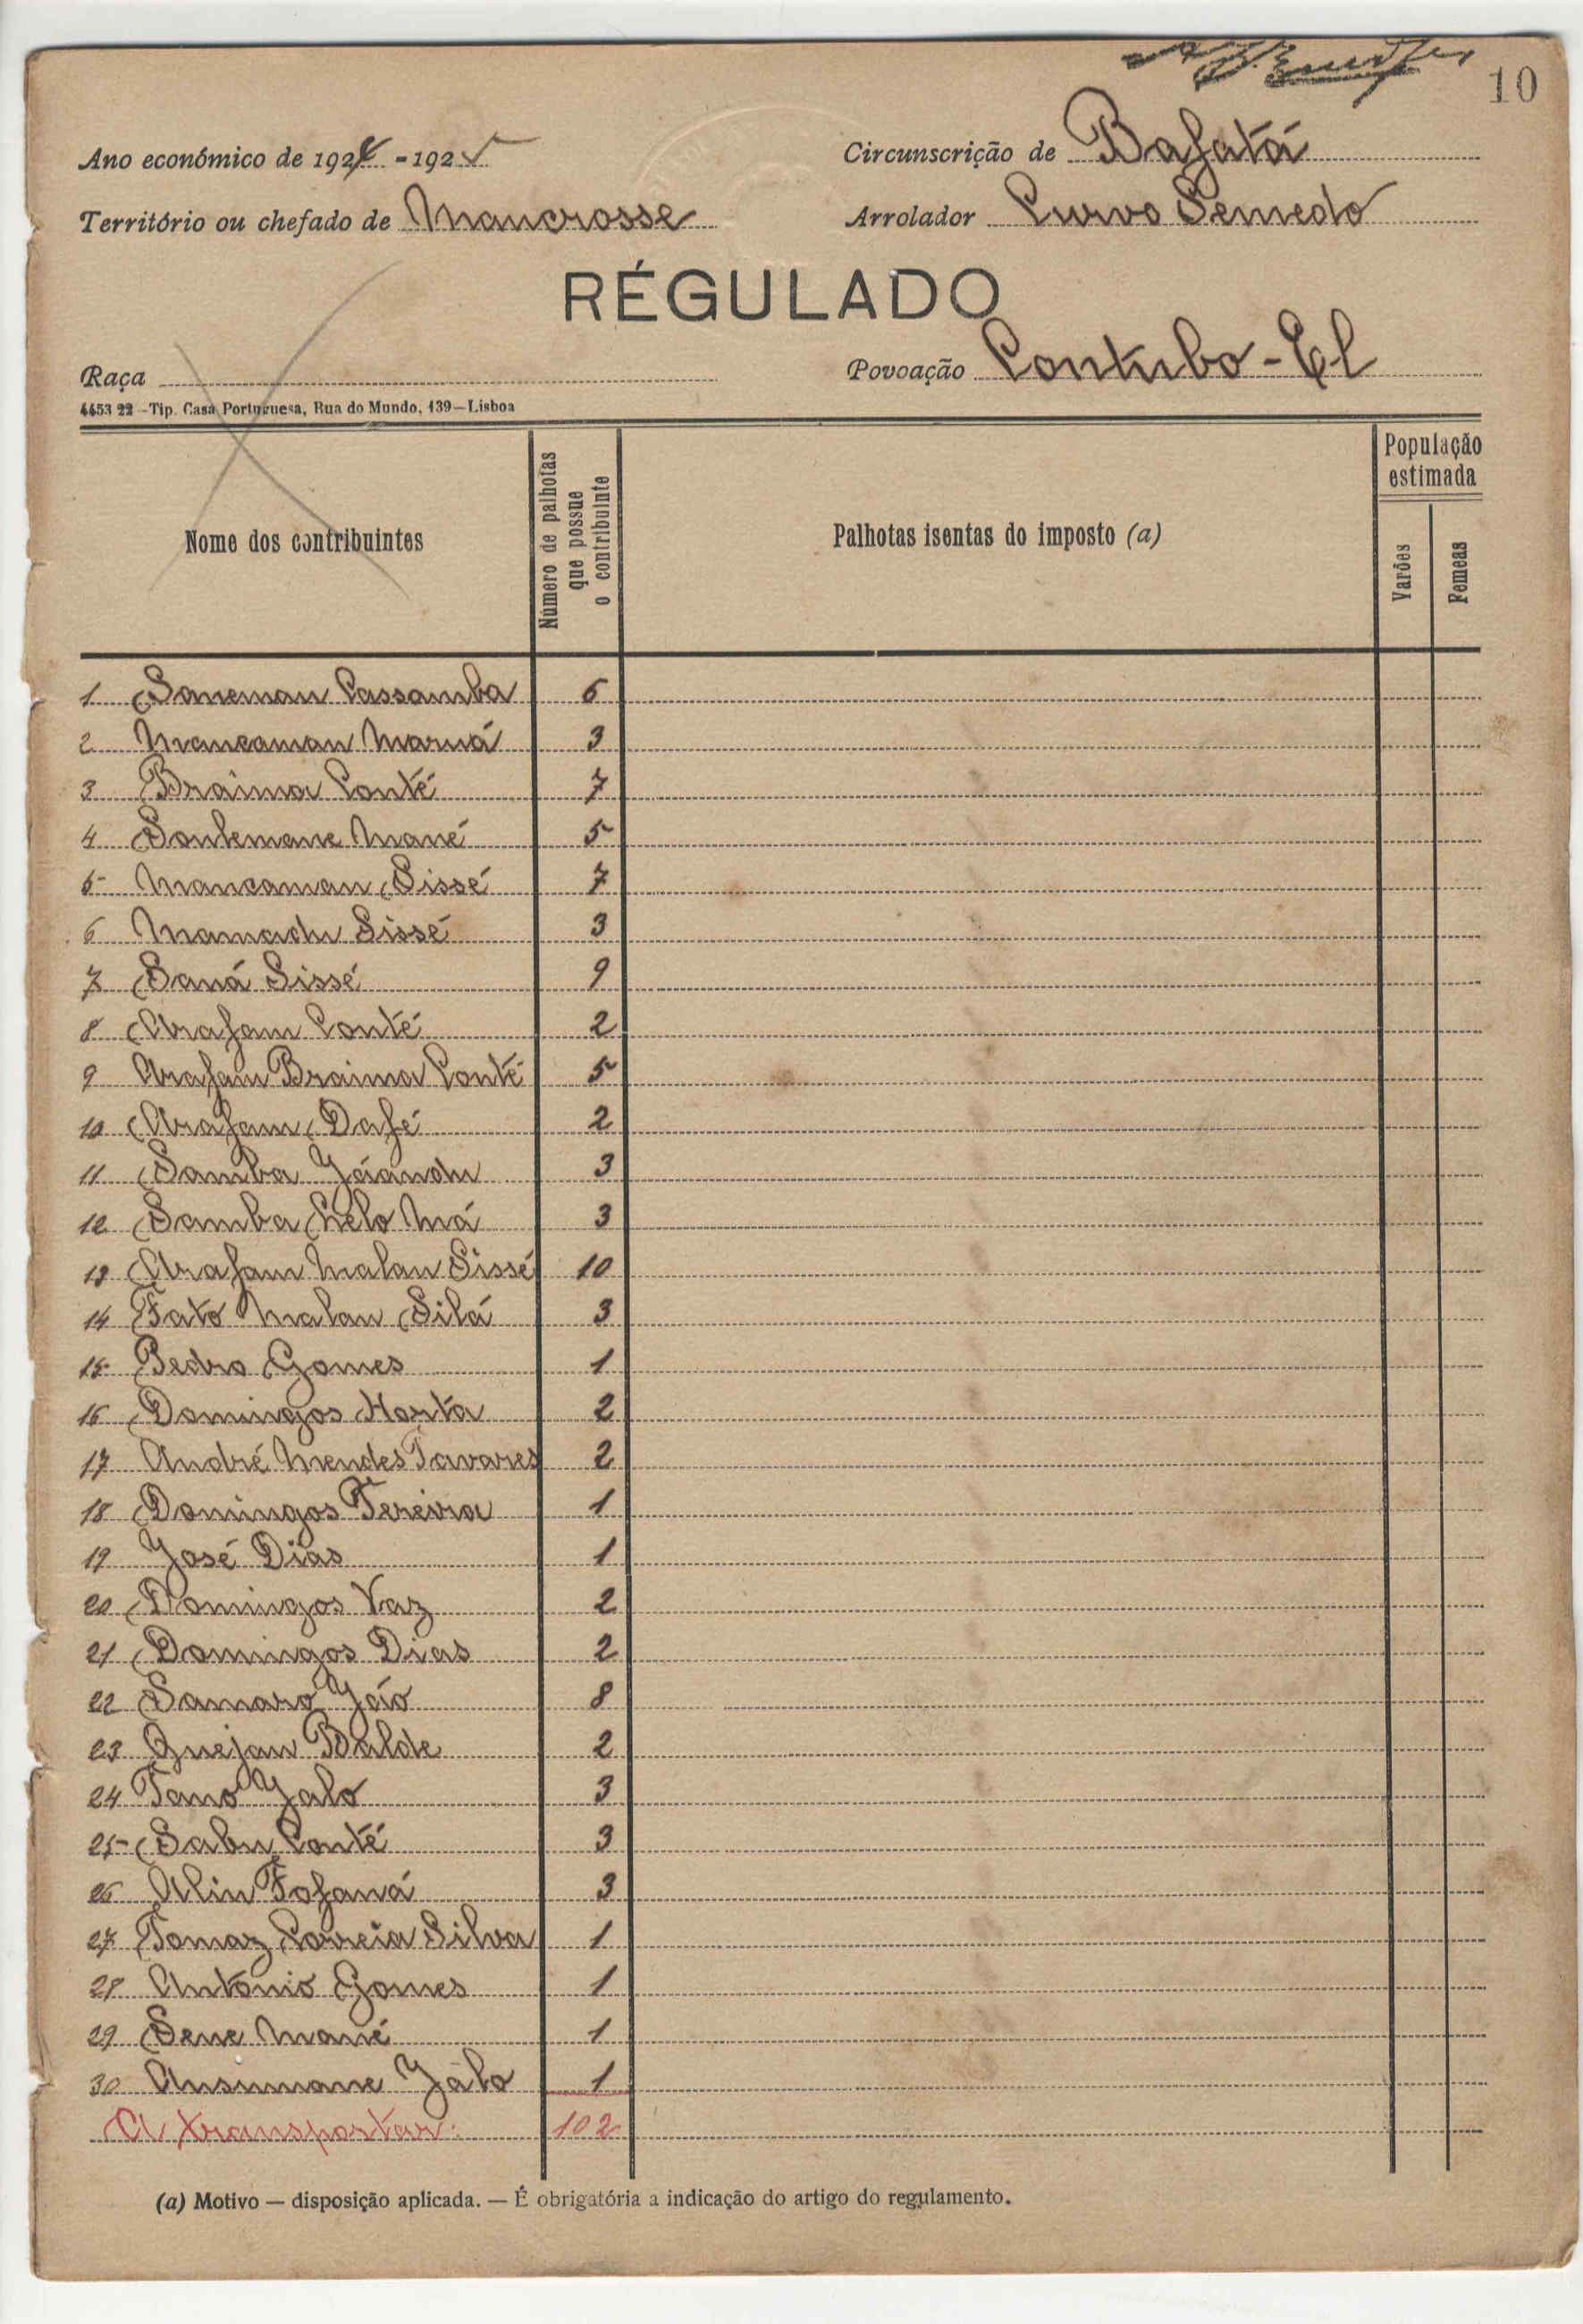 10
Ano económico de 1924 - 1925
Circunscrição de Bafatá
Território ou chefado de Mancrosse
Arrolador Curvo Semedo
RÉGULADO
Raça
Povoação Contubo-El
4453 22 - Tip. Casa Portuguesa, Rua do Mundo, 139 - Lisboa
Nome dos contribuintes
Número de palhotas que possue o contribuinte
Palhotas isentas do imposto (a)
População estimada
Varões
Femeas
1 Soneman Cassamba 6
2 Mancaman 3
3 Braima Conté 7
4 Soulemane Mané 5
5 Mancaman Sissé 7
6 Mamadu Sissé 3
7 Saná Sissé 9
8 Arafam Conté 2
9 Arafam Braima Conté 5
10 Arafam Dafé 2
11 Samba 3
12 Samba Chelo Má 3
13 Arafam Malan Sissé 10
14 Fato Malan Silá 3
15 Pedro Gomes 1
16 Domingos Horta 2
17 André Mendes Tavares 2
18 Domingos Fereira 1
19 José Dias 1
20 Domingos Vaz 2
21 Domingos Dias 2
22 Samaro 8
23 Guejan Balde 2
24 Tano Jalo 3
25 Sabu Conté 3
26 Alin Fofaná 3
27 Tomaz Correia Silva 1
28 António Gomes 1
29 Sene Mané 1
30 Ansumane Jálo 1
A transportar: 102
(a) Motivo — disposição aplicada. — É obrigatória a indicação do artigo do regulamento.